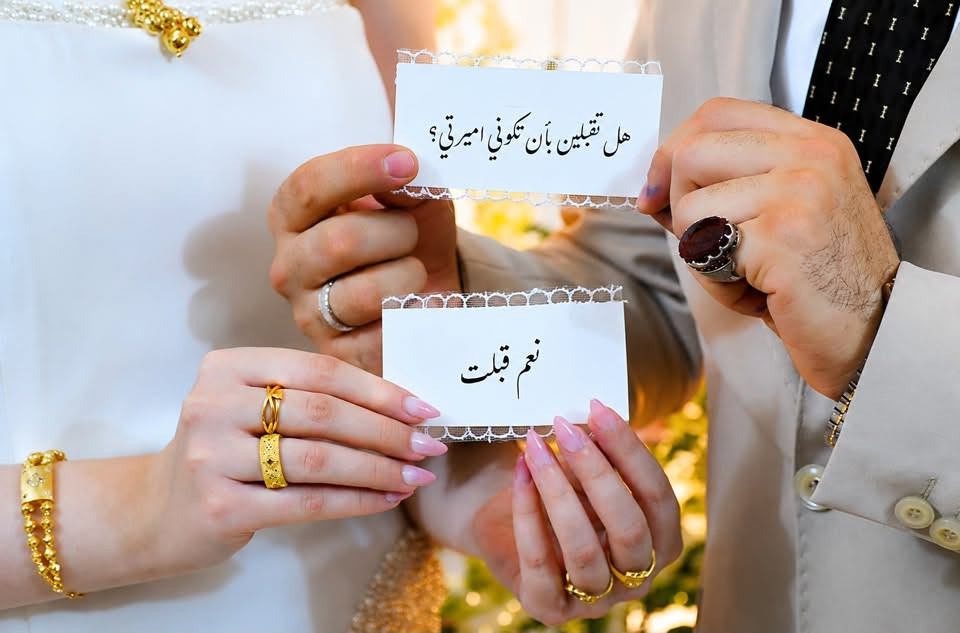 هل تقبلين بأن تكوني اميرتي؟
نعم قبلت